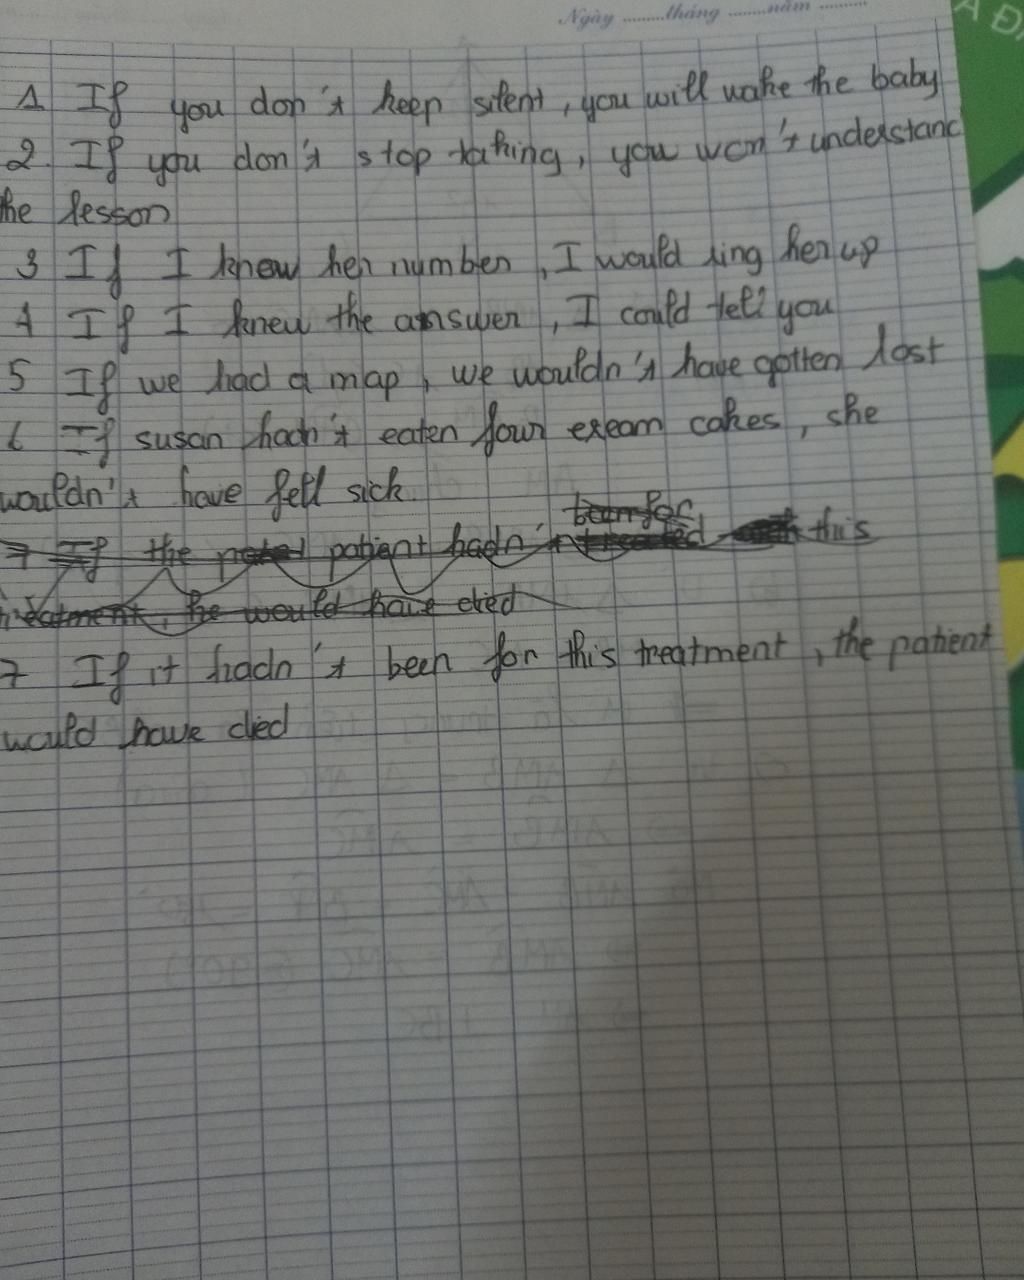 Ngày ........tháng ........năm ..........
A Đ
1 If you don't keep silent, you will wake the baby
2. If you don't stop taking, you won't understand
the lesson
3 If I knew her number, I would ring her up
4 If I knew the answer, I could tell you
5 If we had a map, we wouldn't have gotten lost
6 If susan hadn't eaten four cream cakes, she
wouldn't have fell sick
been for
7 If the patient hadn't this
treatment, he would have died
7 If it hadn't been for this treatment, the patient
would have died